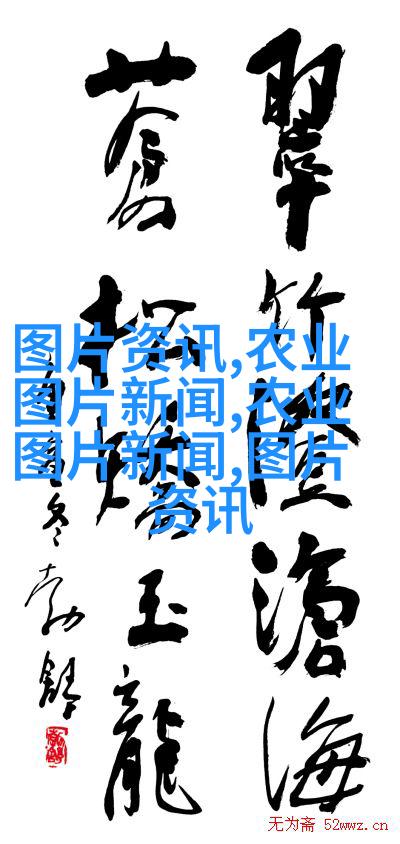 翠竹滄海
蒼松玉龍
冬勃舒
图片资讯,农业
图片新闻,农业
图片新闻,图片
资讯
无为斋 52wwz.cn